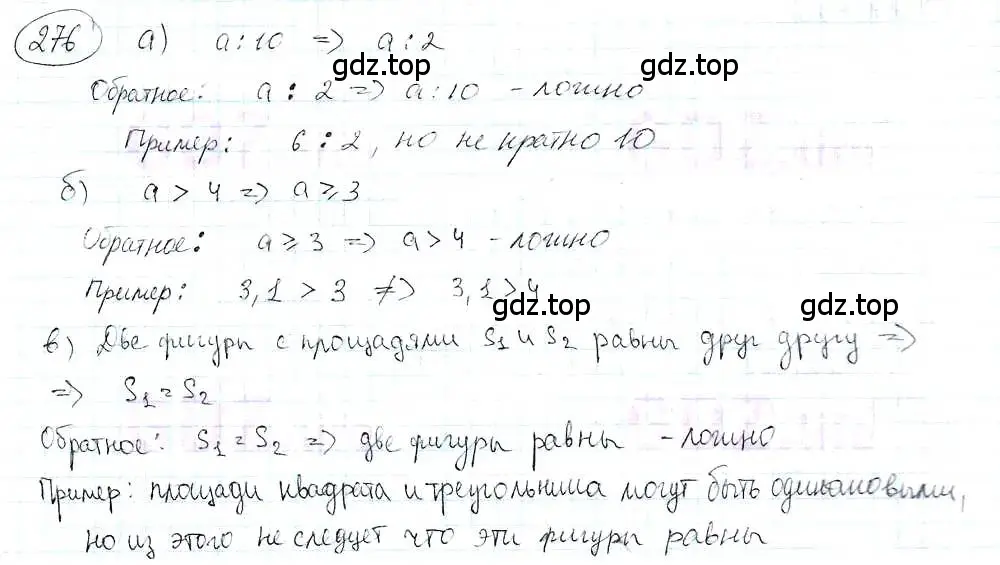 276 а) a ⋮ 10 => a ⋮ 2
gdz.top gdz.top
Обратное: a ⋮ 2 => a ⋮ 10 - ложно
Пример: 6 ⋮ 2, но не кратно 10
б) a > 4 => a ≥ 3
Обратное: a ≥ 3 => a > 4 - ложно
Пример: 3,1 > 3 ≠> 3,1 > 4
gdz.top gdz.top
в) Две фигуры с площадями S1 и S2 равны друг другу =>
=> S1 = S2
Обратное: S1 = S2 => две фигуры равны - ложно
Пример: площади квадрата и треугольника могут быть одинаковыми,
но из этого не следует что эти фигуры равны